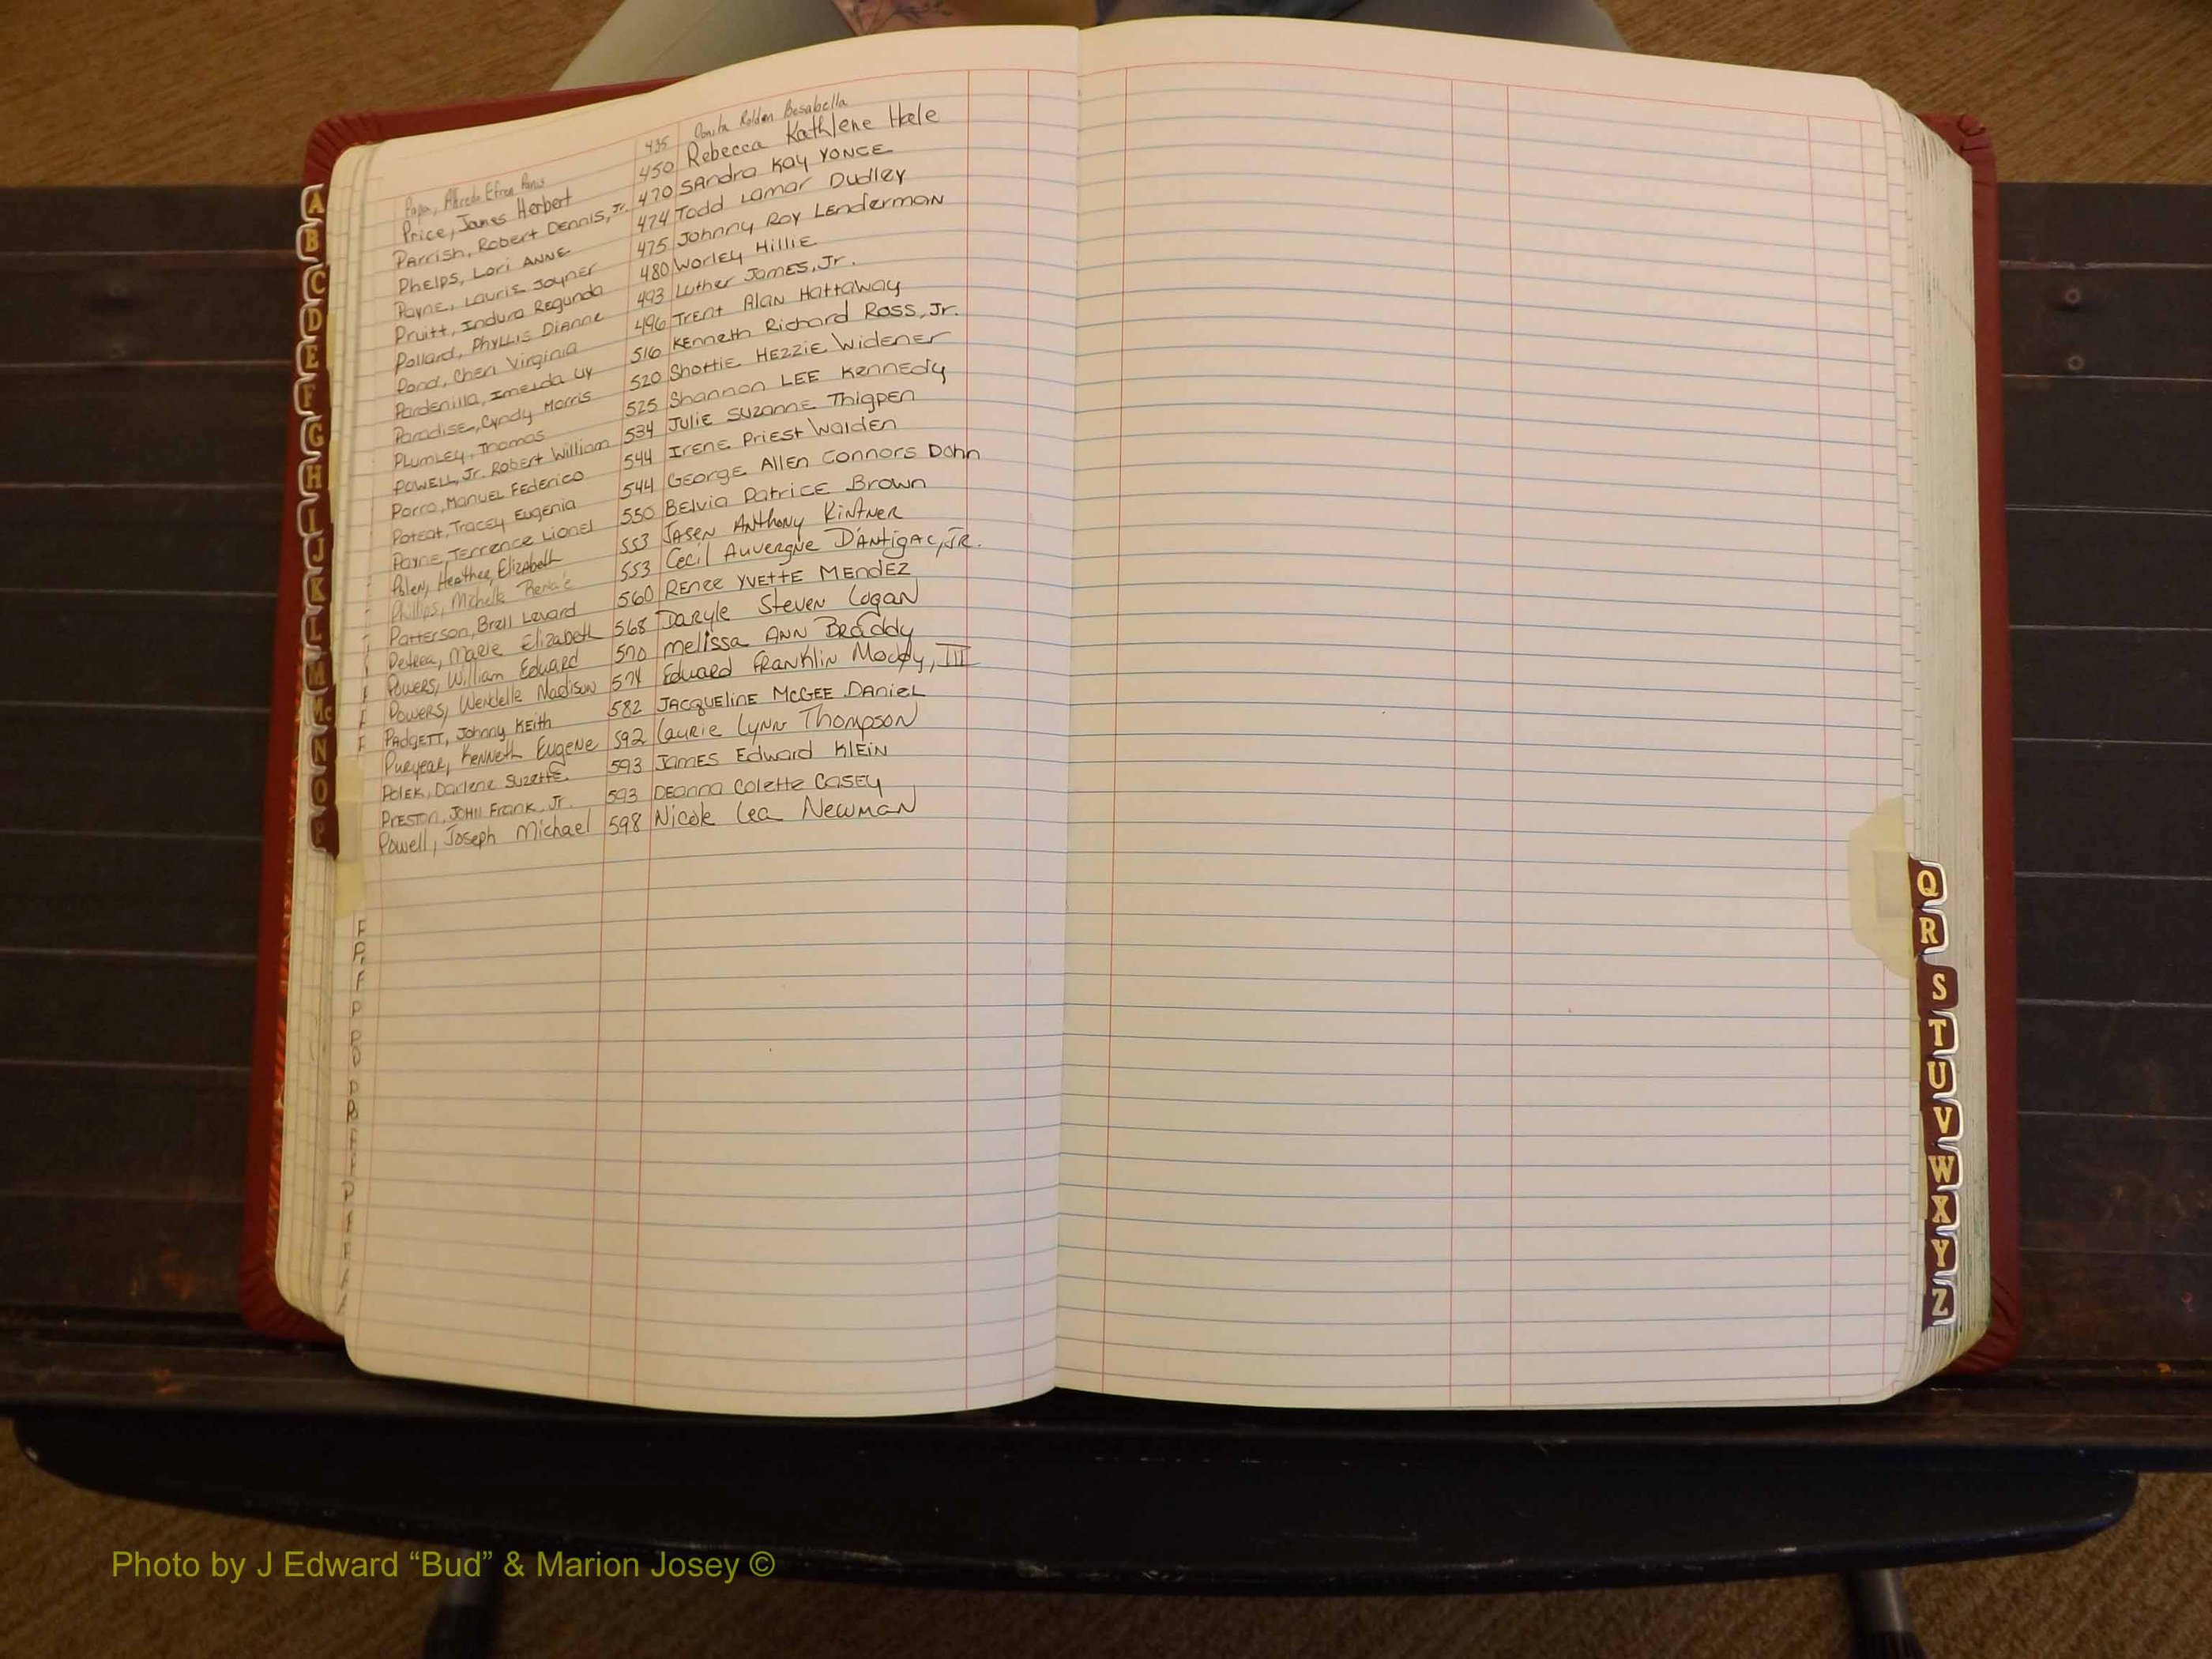 Papa, Alfredo Efren Panis 435 Roldan Besabella
Price, James Herbert 450 Rebecca Kathlene Hale
Parrish, Robert Dennis, Jr. 470 Sandra Kay YONCE
Phelps, Lori ANNE 474 Todd Lamar Dudley
Payne, Laurie Joyner 475 Johnny Roy Lenderman
Pruitt, Indura Regunda 480 Worley Hillie
Pollard, Phyllis Dianne 493 Luther James, Jr.
Pond, Cheri Virginia 496 Trent Alan Hattaway
Pardenilla, Imelda Uy 516 Kenneth Richard Ross, Jr.
Paradise, Cyndy Morris 520 Shottie Hezzie Widener
Plumley, Thomas 525 Shannon LEE Kennedy
POWELL, Jr. Robert William 534 Julie Suzanne Thigpen
Parra, Manuel Federico 544 Irene Priest Walden
Poteat, Tracey Eugenia 544 George Allen Connors Dohn
Payne, Terrence Lionel 550 Belvia Patrice Brown
Palen, Heather Elizabeth 553 Jasen Anthony Kintner
Phillips, Michelle Renae 553 Cecil Auvergne D'Antignac, JR.
Patterson, Brell Levard 560 Renee YVETTE MENDEZ
Petrea, Marie Elizabeth 568 Daryle Steven Logan
Powers, William Edward 570 Melissa ANN Braddy
Powers, Wendelle Madison 574 Edward Franklin Moody, III
PADGETT, Johnny Keith 582 JACQUELINE McGEE DANIEL
Puryear, Kenneth Eugene 592 Laurie Lynn Thompson
Polek, Darlene Suzette 593 James Edward KLEIN
PRESTON, JOHN Frank, Jr. 593 DEanna Colette CASEY
Powell, Joseph Michael 598 Nicole Lea Newman
A
B
C
D
E
F
G
H
I
J
K
L
M
Mc
N
O
P
Q
R
S
T
U
V
W
X
Y
Z
Photo by J Edward “Bud” & Marion Josey ©